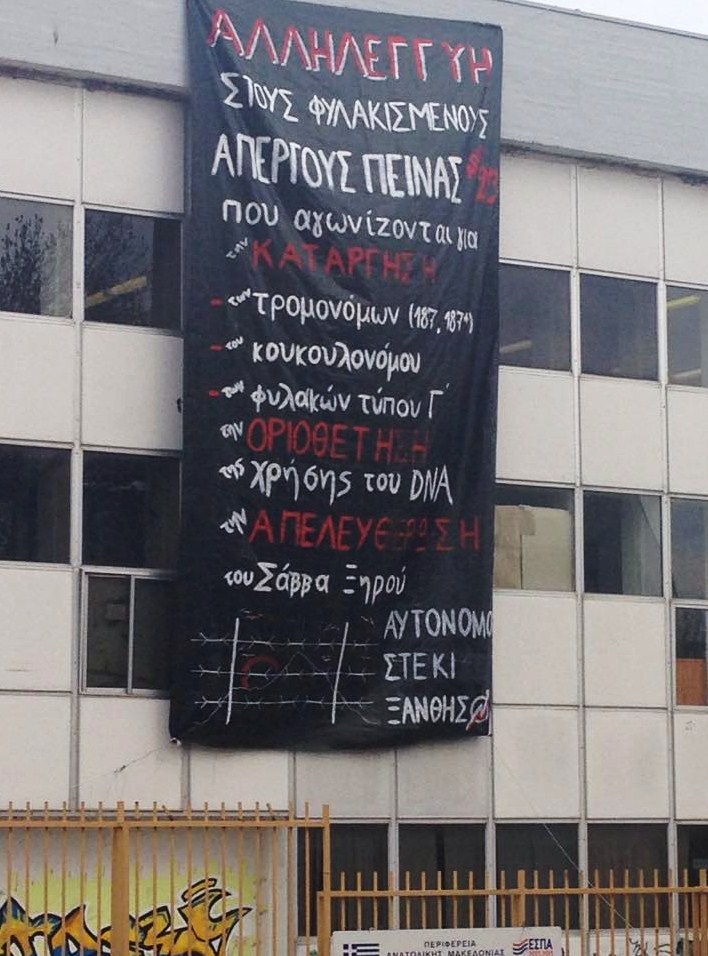 ΑΛΛΗΛΕΓΓΥΗ
ΣΤΟΥΣ ΦΥΛΑΚΙΣΜΕΝΟΥΣ
ΑΠΕΡΓΟΥΣ ΠΕΙΝΑΣ
που αγωνίζονται για
την ΚΑΤΑΡΓΗΣΗ
- των τρομονόμων (187, 187Α)
- του κουκουλονόμου
- των φυλακών τύπου Γ'
την ΟΡΙΟΘΕΤΗΣΗ
της χρήσης του DNA
την ΑΠΕΛΕΥΘΕΡΩΣΗ
του Σάββα Ξηρού
ΑΥΤΟΝΟΜΟ
ΣΤΕΚΙ
ΞΑΝΘΗΣ
ΠΕΡΙΦΕΡΕΙΑ
ΑΝΑΤΟΛΙΚΗΣ ΜΑΚΕΔΟΝΙΑΣ
ΕΣΠΑ